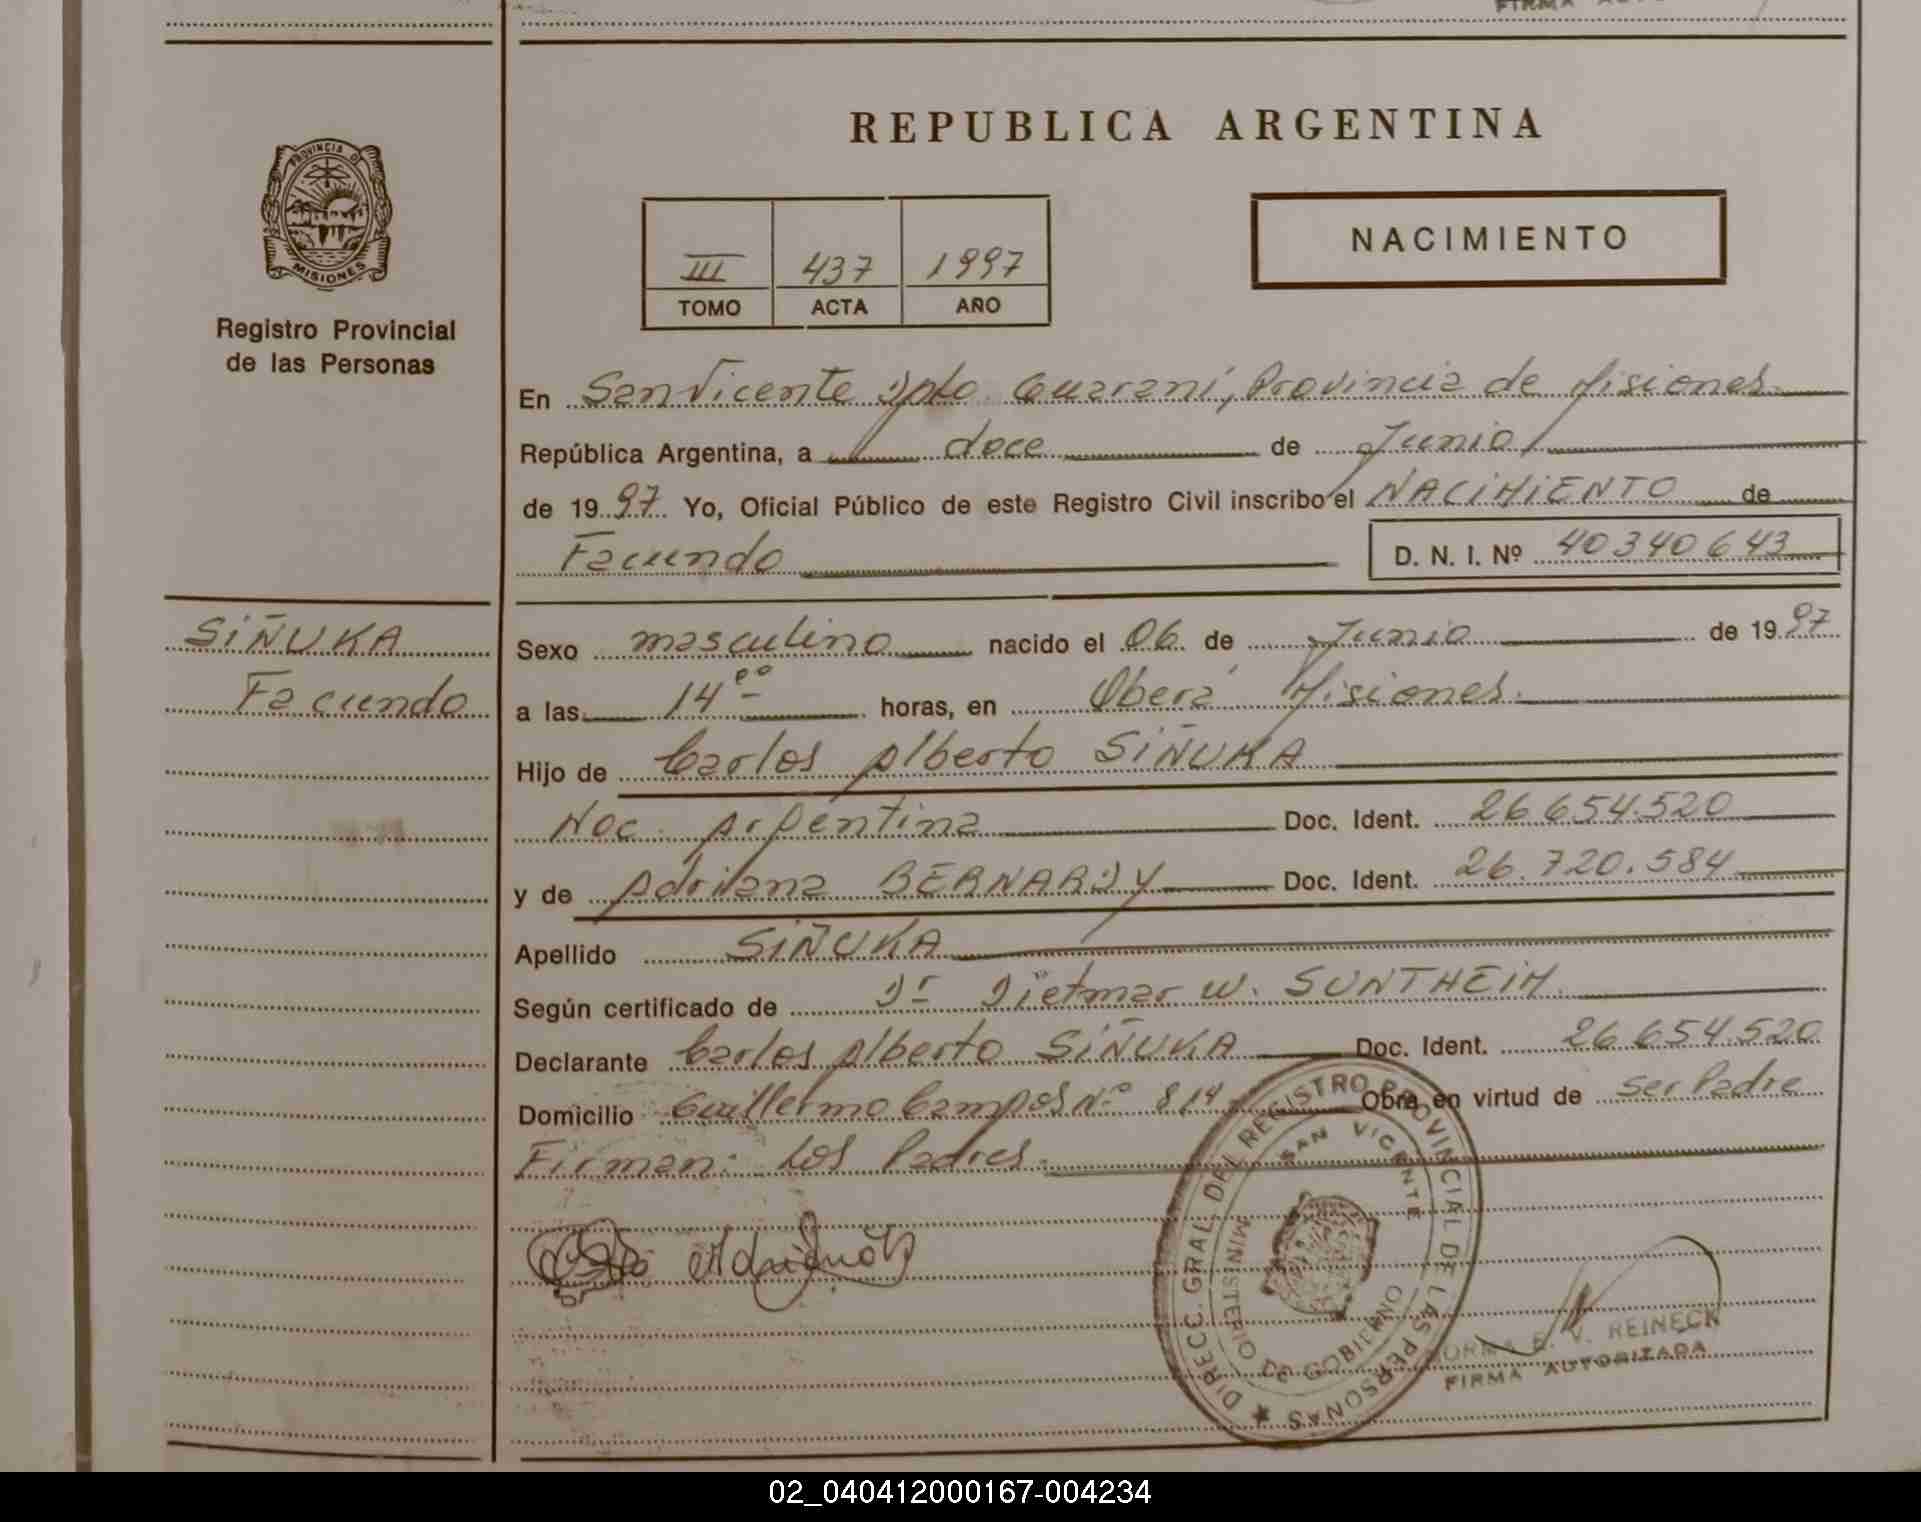 REPUBLICA ARGENTINA
PROVINCIA D
MISIONES
Registro Provincial
de las Personas
III 437 1997
TOMO ACTA AÑO
NACIMIENTO
En San Vicente Dpto. Guaraní, Provincia de Misiones
República Argentina, a doce de Junio
de 1997 Yo, Oficial Público de este Registro Civil inscribo el NACIMIENTO de
Facundo D. N. I. Nº 40340643
SIÑUKA
Facundo
Sexo masculino nacido el 06 de Junio de 1997
a las 14 oo horas, en Oberá Misiones.
Hijo de Carlos Alberto SIÑUKA
Nac. Argentina Doc. Ident. 26.654.520
y de Adriana BERNARDY Doc. Ident. 26.720.584
Apellido SIÑUKA
Según certificado de Dr Dietmar W. SUNTHEIM.
Declarante Carlos Alberto SIÑUKA Doc. Ident. 26.654.520
Domicilio Guillermo Campos Nº 814 Obra en virtud de ser Padre
Firman: Los Padres.
DIRECC. GRAL. DEL REGISTRO PROVINCIAL DE LAS PERSONAS
SAN VICENTE
MINISTERIO DE GOBIERNO
E. V. REINECK
FIRMA AUTORIZADA
02_040412000167-004234